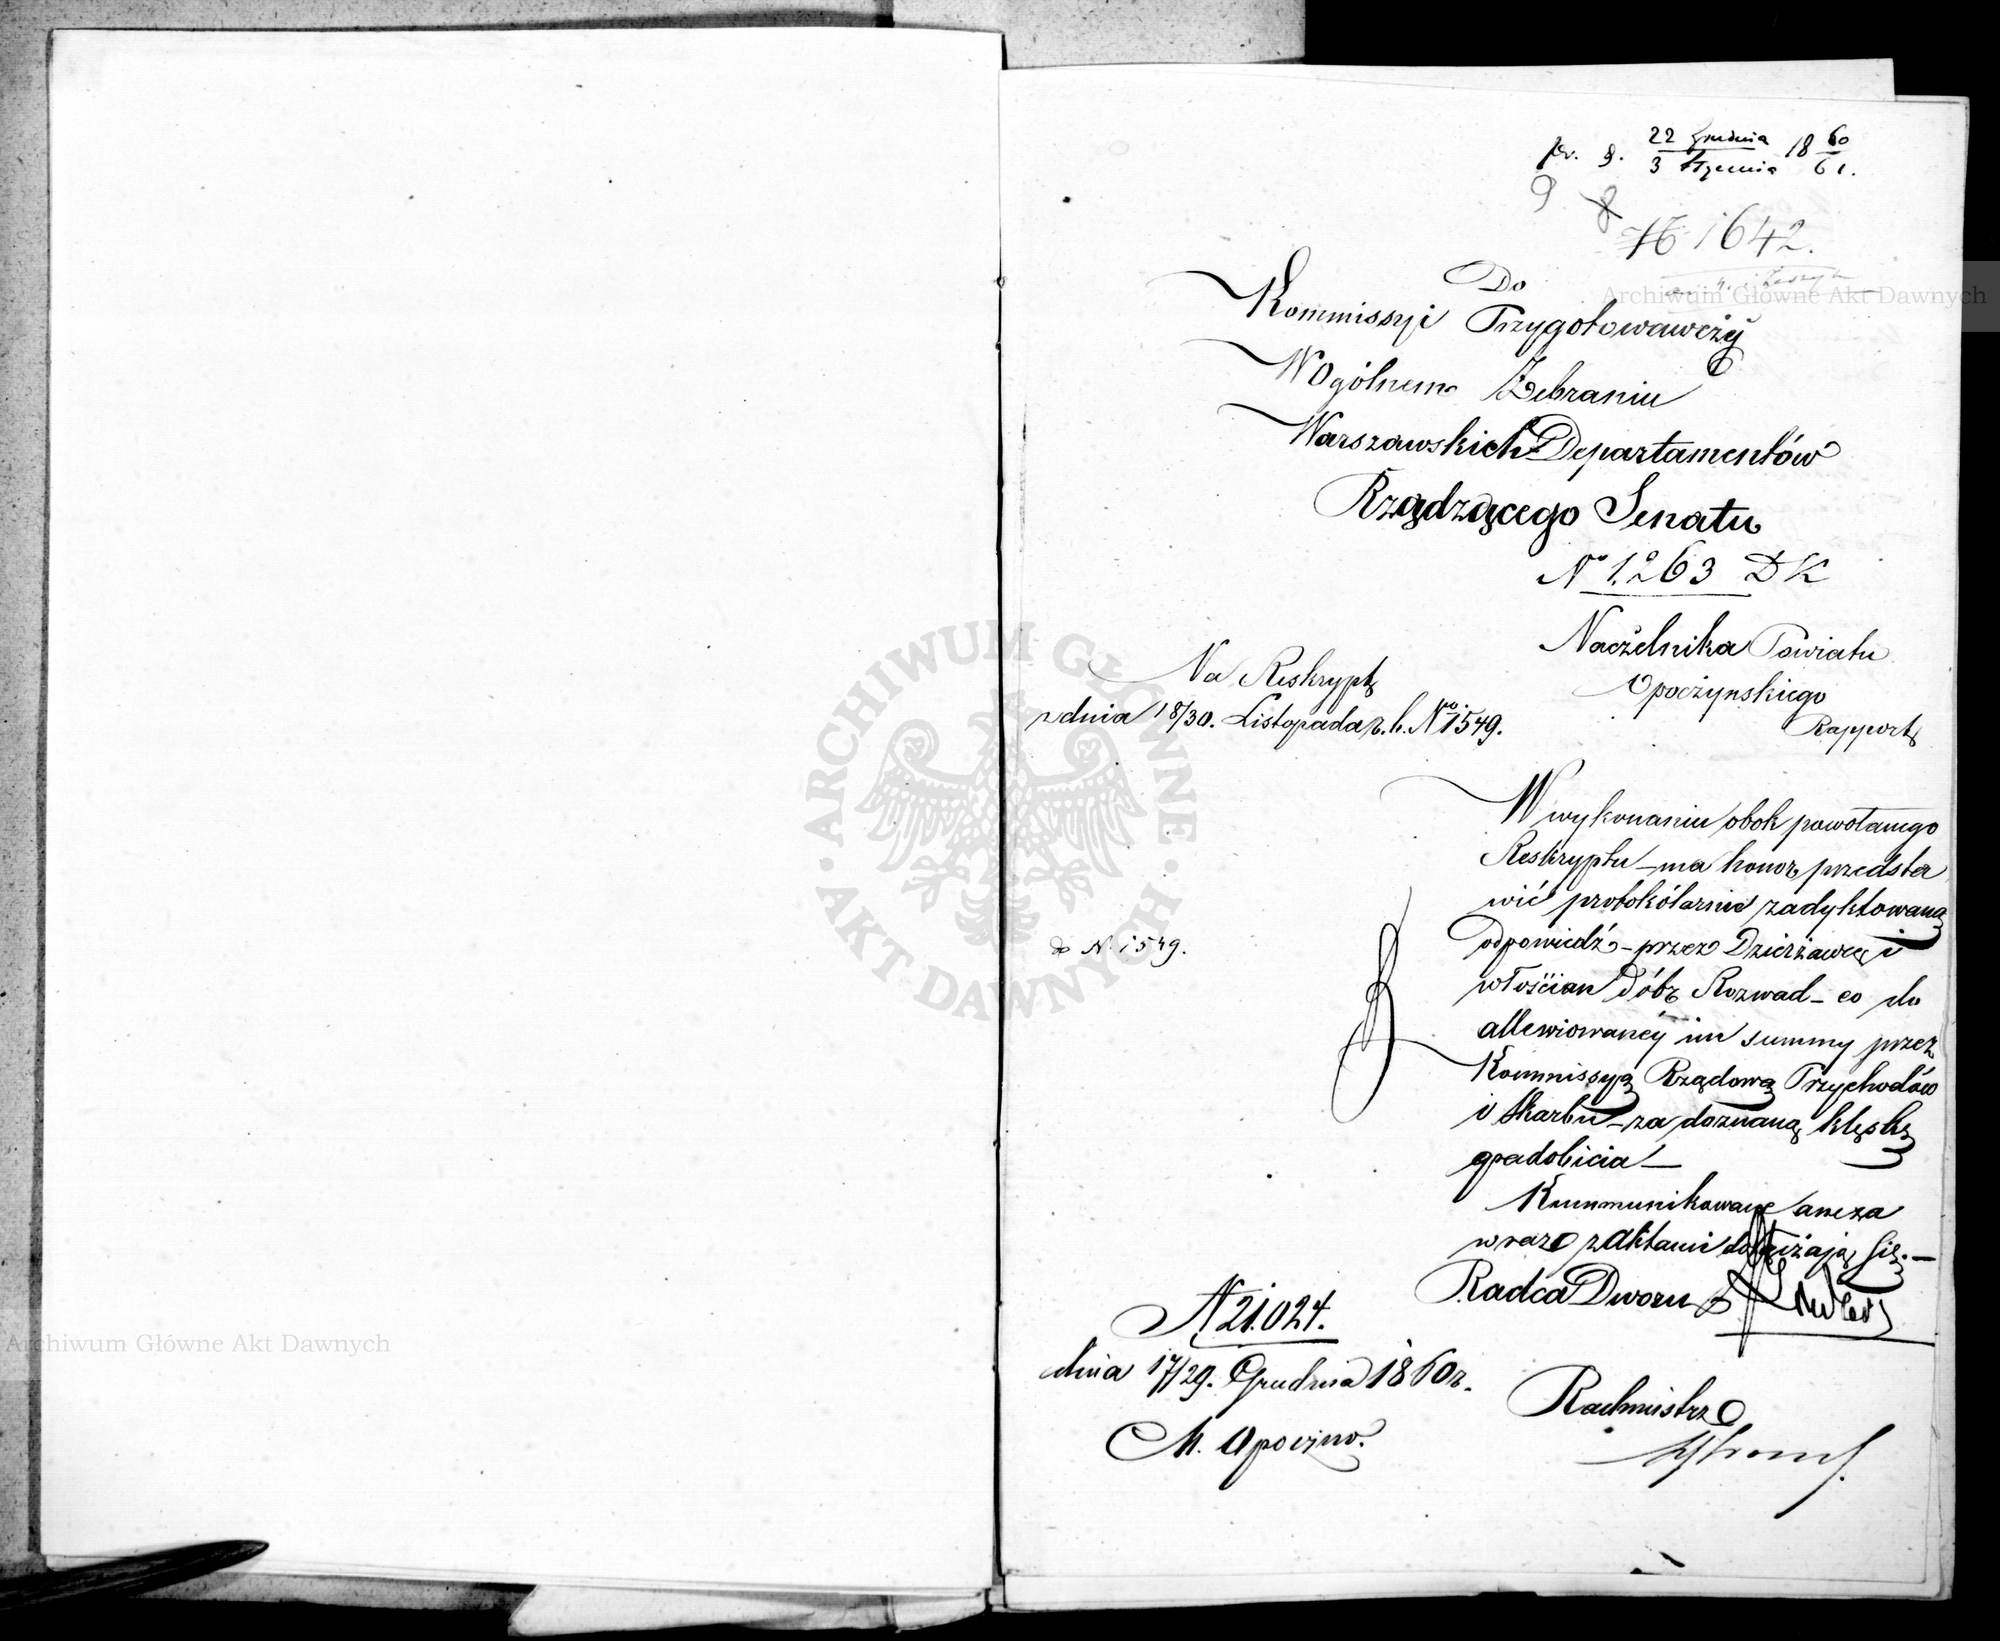 pr. d. 22 Grudnia / 3 Stycznia 18 60/61.
9 8
N 1642.
Do
Kommissyi Przygotowawczéy
W Ogólnem Zebraniu
Warszawskich Departamentów
Rządzącego Senatu
No 1.263 DK
Naczelnika Powiatu
Opoczynskiego
Rapport
Na Reskrypt
z dnia 18/30. Listopada r. b. Nro 1549.
W wykonaniu obok powołanego
Reskryptu – ma honor przedsta
wić protokólarnie zadyktowaną
odpowiedź – przez Dzierżawcę i
włościan Dóbr Rozwad – co do
allewiowanéy im summy przez
Kommissyą Rządową Przychodów
i Skarbu – za doznaną klęskę
gradobicia –
do N. 1549.
Kommunikowane anexa
wraz z aktami dołączają się. –
Radca Dworu
N 21.024.
dnia 17/29. Grudnia 1860 r.
M. Opoczno.
Rachmistrz
ARCHIWUM GŁÓWNE AKT DAWNYCH
Archiwum Główne Akt Dawnych
Archiwum Główne Akt Dawnych